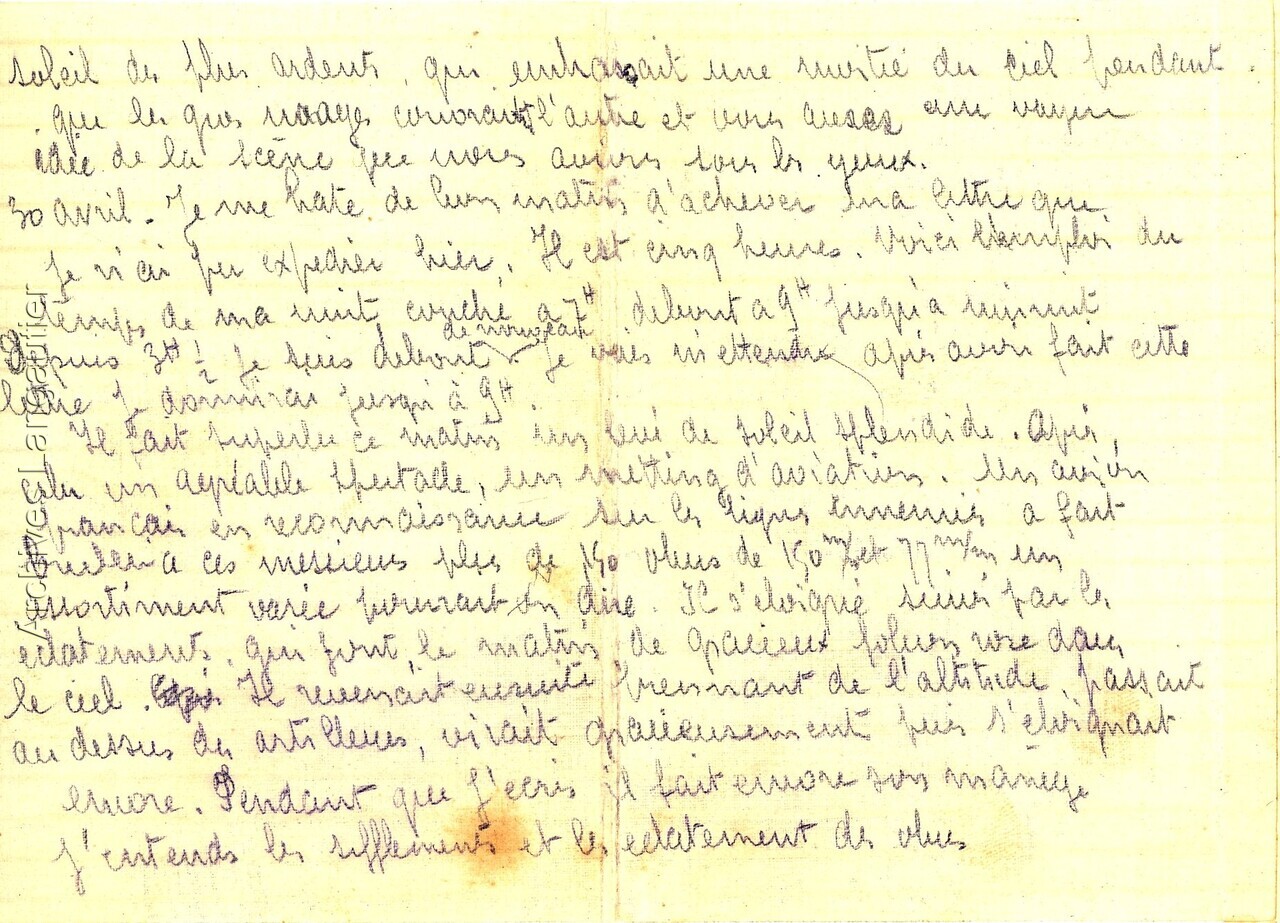 soleil des plus ardents, qui embrasait une moitié du ciel pendant
que les gros nuages couvraient l'autre et vous aurez une vague
idée de la scène que nous avions sous les yeux.
30 avril. Je me hate de bon matin d'achever ma lettre que
je n'ai pu expedier hier. Il est cinq heures. Voici l'emploi du
temps de ma nuit couché a 7H debout a 9H jusqu'a minuit
Depuis 3H 1/2 je suis debout de nouveau je vais m'etendre après avoir fait cette
lettre je dormirai jusqu'à 9H.
Il fait superbe ce matin un levé de soleil splendide. Après
cela un agréable spectacle, un metting d'aviation. Un avion
français en reconnaissance sur les lignes ennemies a fait
a ces messieurs plus de 150 obus de 150 m/m et 77 m/m un
assortiment varée pourrait on dire. Il s'eloigne suivi par les
eclatements, qui font, le matin de gracieux flocons rose dans
le ciel. Il revenait ensuite prennant de l'altitude, passait
au dessus des artilleurs, virait gracieusement puis s'eloignait
encore. Pendant que j'ecris il fait encore son manege
j'entends les sifflements et les eclatement des obus
Archives Langaulier